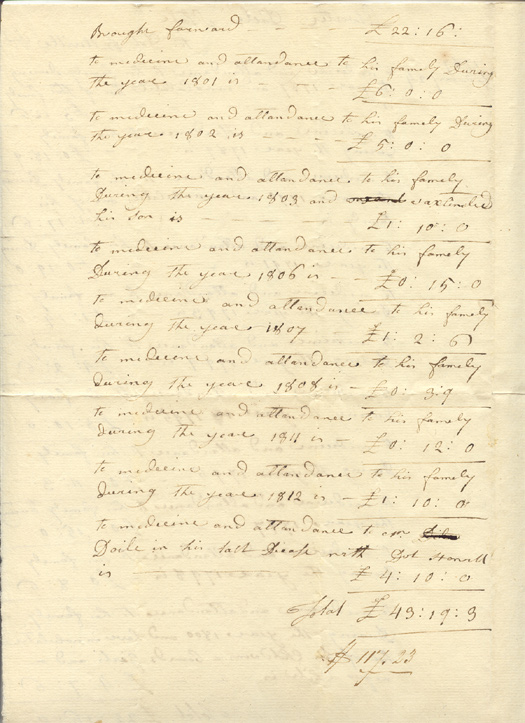 Brought forward - - - £ 22: 16:
to medecine and attendance to his famely During
the year 1801 is - - - £6: 0: 0
to medecine and attendance to his famely During
the year 1802 is - - £ 5: 0: 0
to medecine and attendance to his famely
During the year 1803 and
his son is - - - £1: 10: 0
to medecine and attendance to his famely
During the year 1806 is - £0: 15: 0
to medecine and attendance to his famely
during the year 1807 £1: 2: 6
to medecine and attendance to his famely
during the year 1808 is - £0: 3: 9
to medecine and attendance to his famely
during the year 1811 is - £0: 12: 0
to medecine and attendance to his famely
during the year 1812 is - £1: 10: 0
to medecine and attendance to mr
Doile in his last Decease with
is £ 4: 10: 0
Total £ 43: 19: 3
$ 117.23